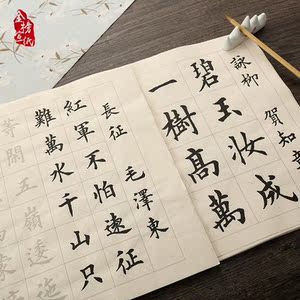 詠柳 賀知
碧玉妆成
一樹高萬
長征 毛澤東
紅軍不怕遠征
難萬水千山只
等閒五嶺逶迤